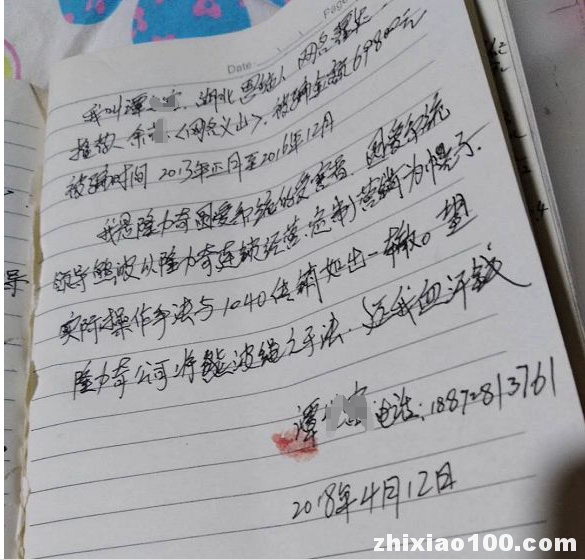 Date:
Page:
我叫谭 湖北恩施人 网名
推荐人 余 〈网名义山〉, 被骗金额69800元
被骗时间 2015年正月至2016年12月
我是隆力奇国爱系统的受害者, 国爱系统
领导熊波以隆力奇连锁经营 营销为幌子.
实际操作手法与1040传销如出一辙。望
隆力奇公司将熊波绳之于法. 还我血汗钱
谭 电话: 18872813761
2018年4月12日
导
zhixiao100.com